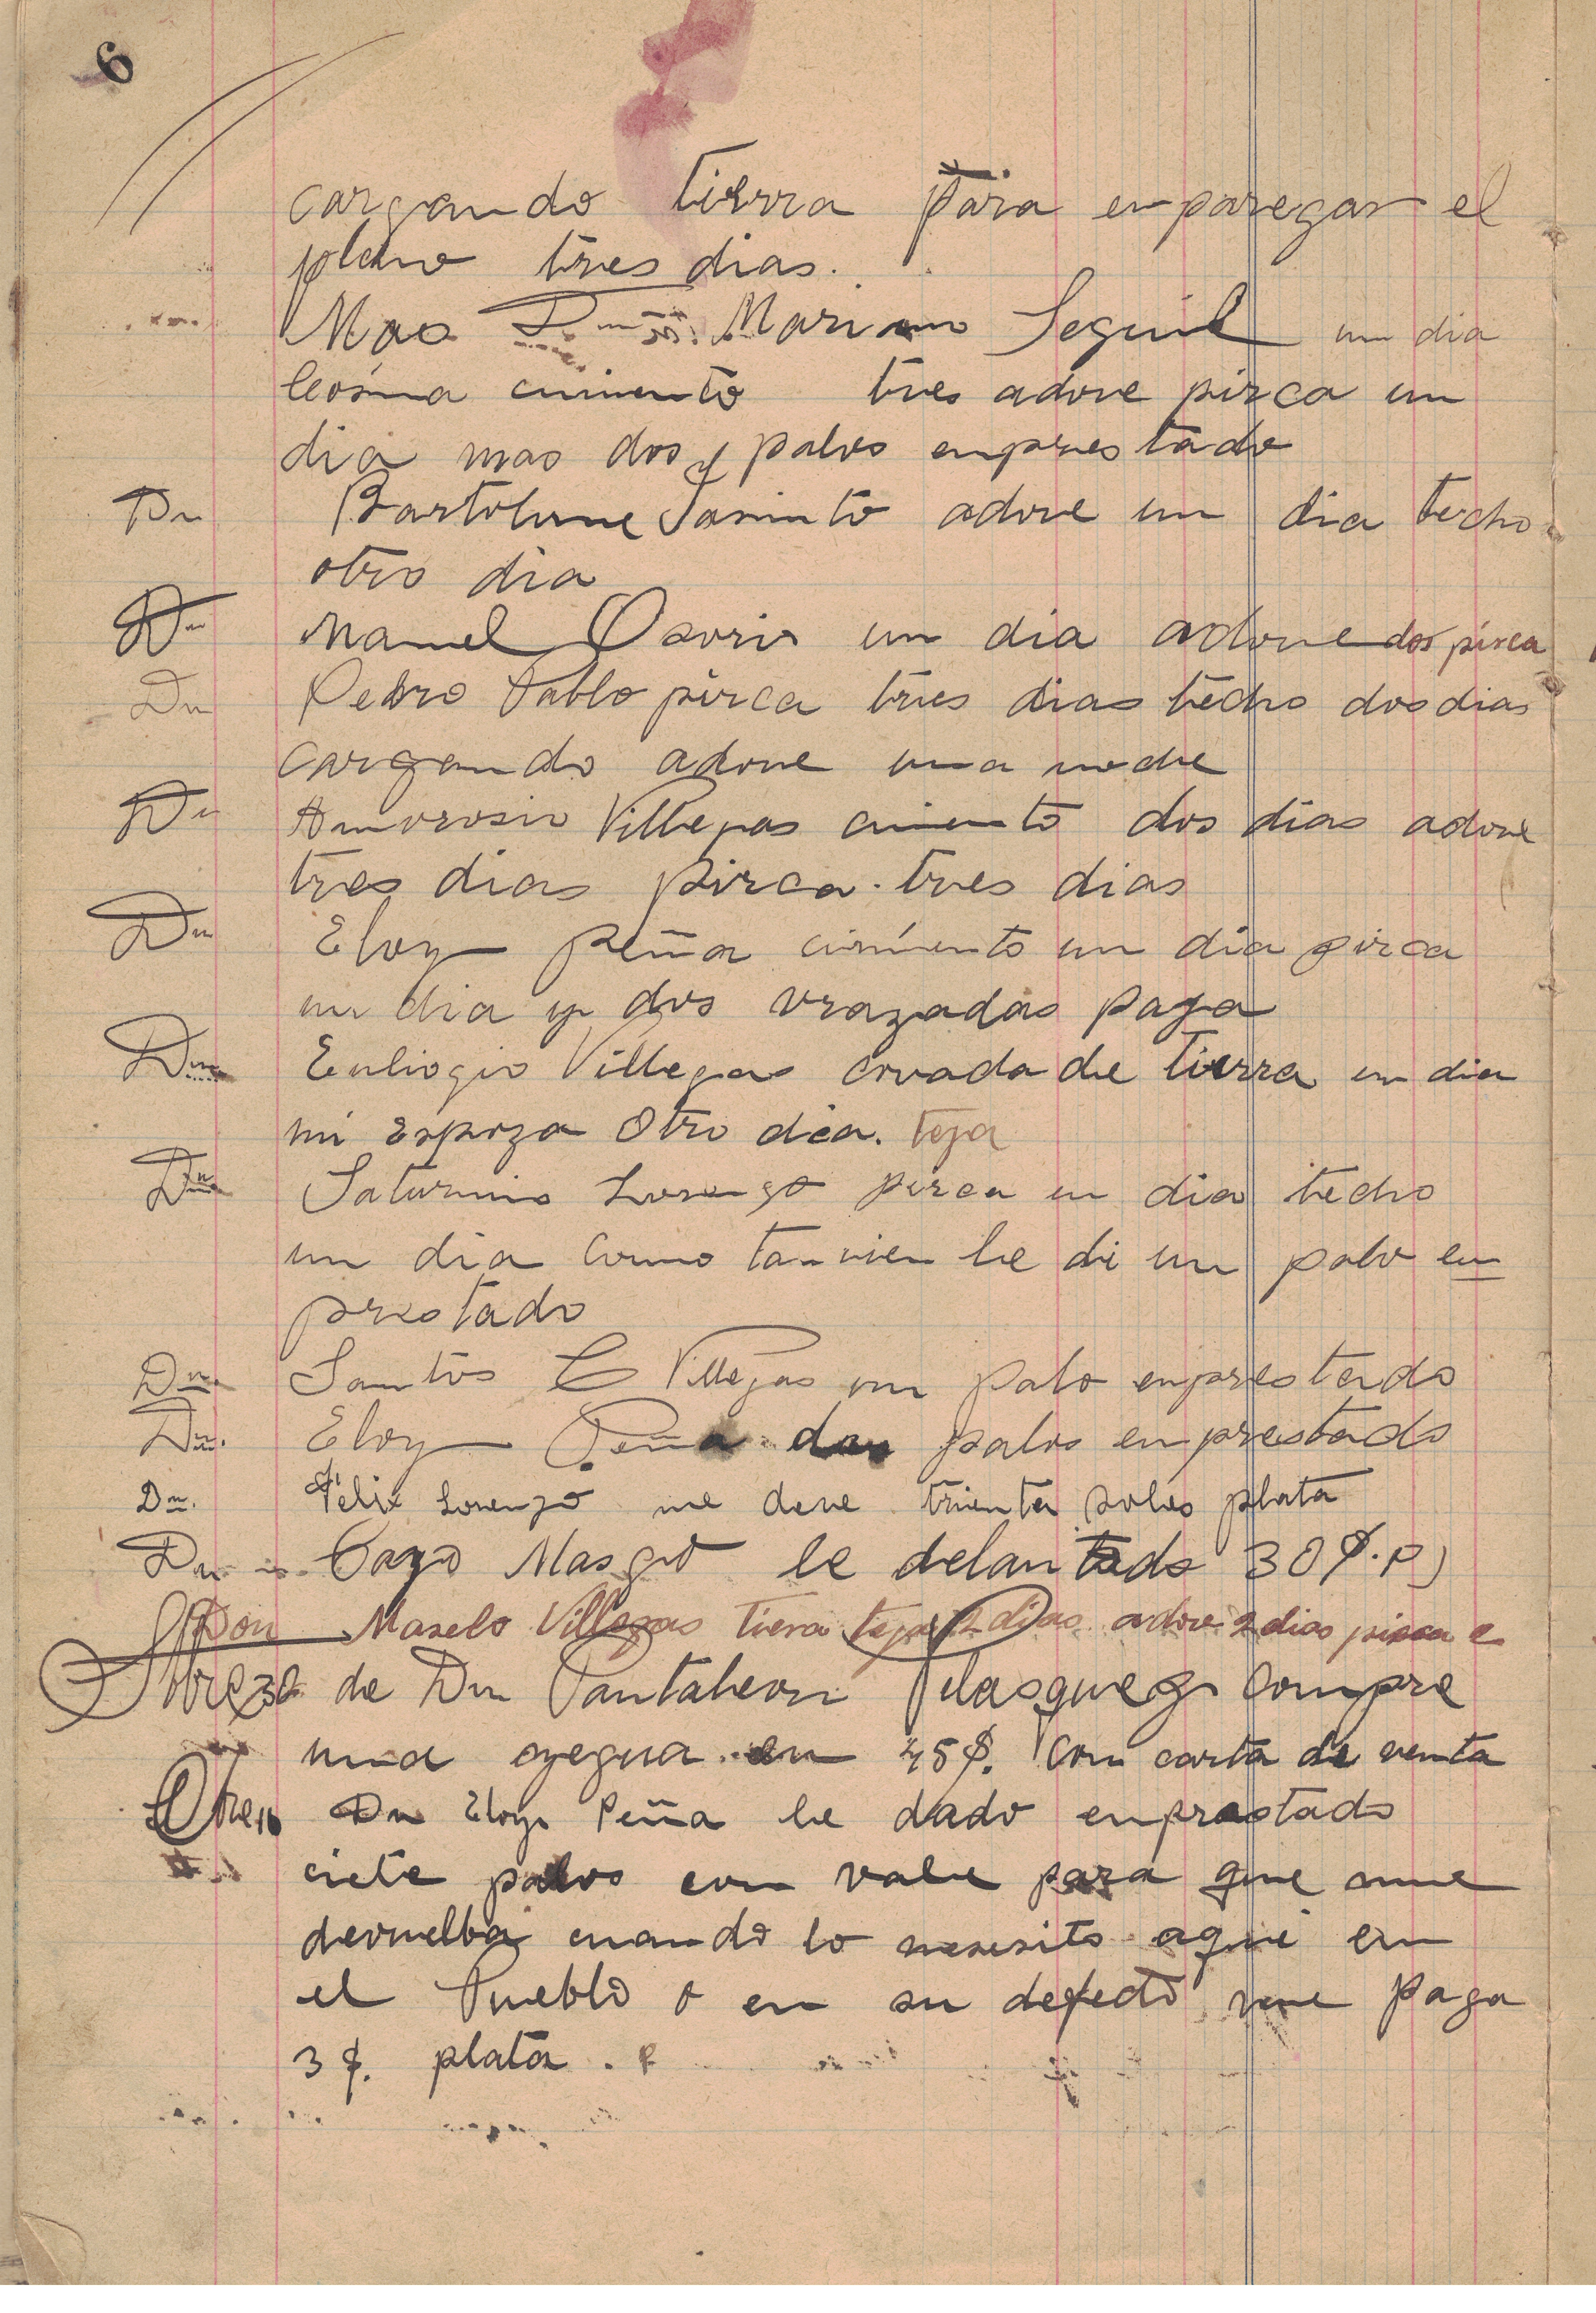 6
cargando tierra para enparegar el
plano tres dias.
Mas Dn. Mariano Seguil un dia
cimiento tres adove pirca un
dia mas dos palos enprestado
Dn Bartolome Jasinto adove un dia techo
otro dia
Dn Manuel Osorio un dia adove dos pirca
Dn Pedro Pablo pirca tres dias techo dos dias
cargando adove una noche
Dn Amvrosio Villegas cimiento dos dias adove
tres dias pirca tres dias
Dn Eloy Peña cimiento un dia pirca
un dia y dos vrazadas paga
Dn Euliogio Villegas covada de tierra un dia
mi Espoza Otro dia. teja
Dn Saturnino Lorenzo pirca un dia techo
un dia como tanvien le di un palo en
prestado
Dn. Santos C Villegas un palo enprestado
Dn. Eloy Peña dos palos enprestado
Dn. Felix Lorenzo me deve trienta soles plata
Dn Cayo Masgo le delantado 30 $. P)
Don Maselo Villegas tiera teja 2 dias adove 2 dias pirca
de Dn Pantaleon Velasquez Compre
una yegua en 45$. Con carta de venta
Dn Eloy Peña le dado enprestado
ciete palos con vale para que me
devuelba cuando lo nesesito aqui en
el Pueblo o en su defecto me paga
3 $. plata.